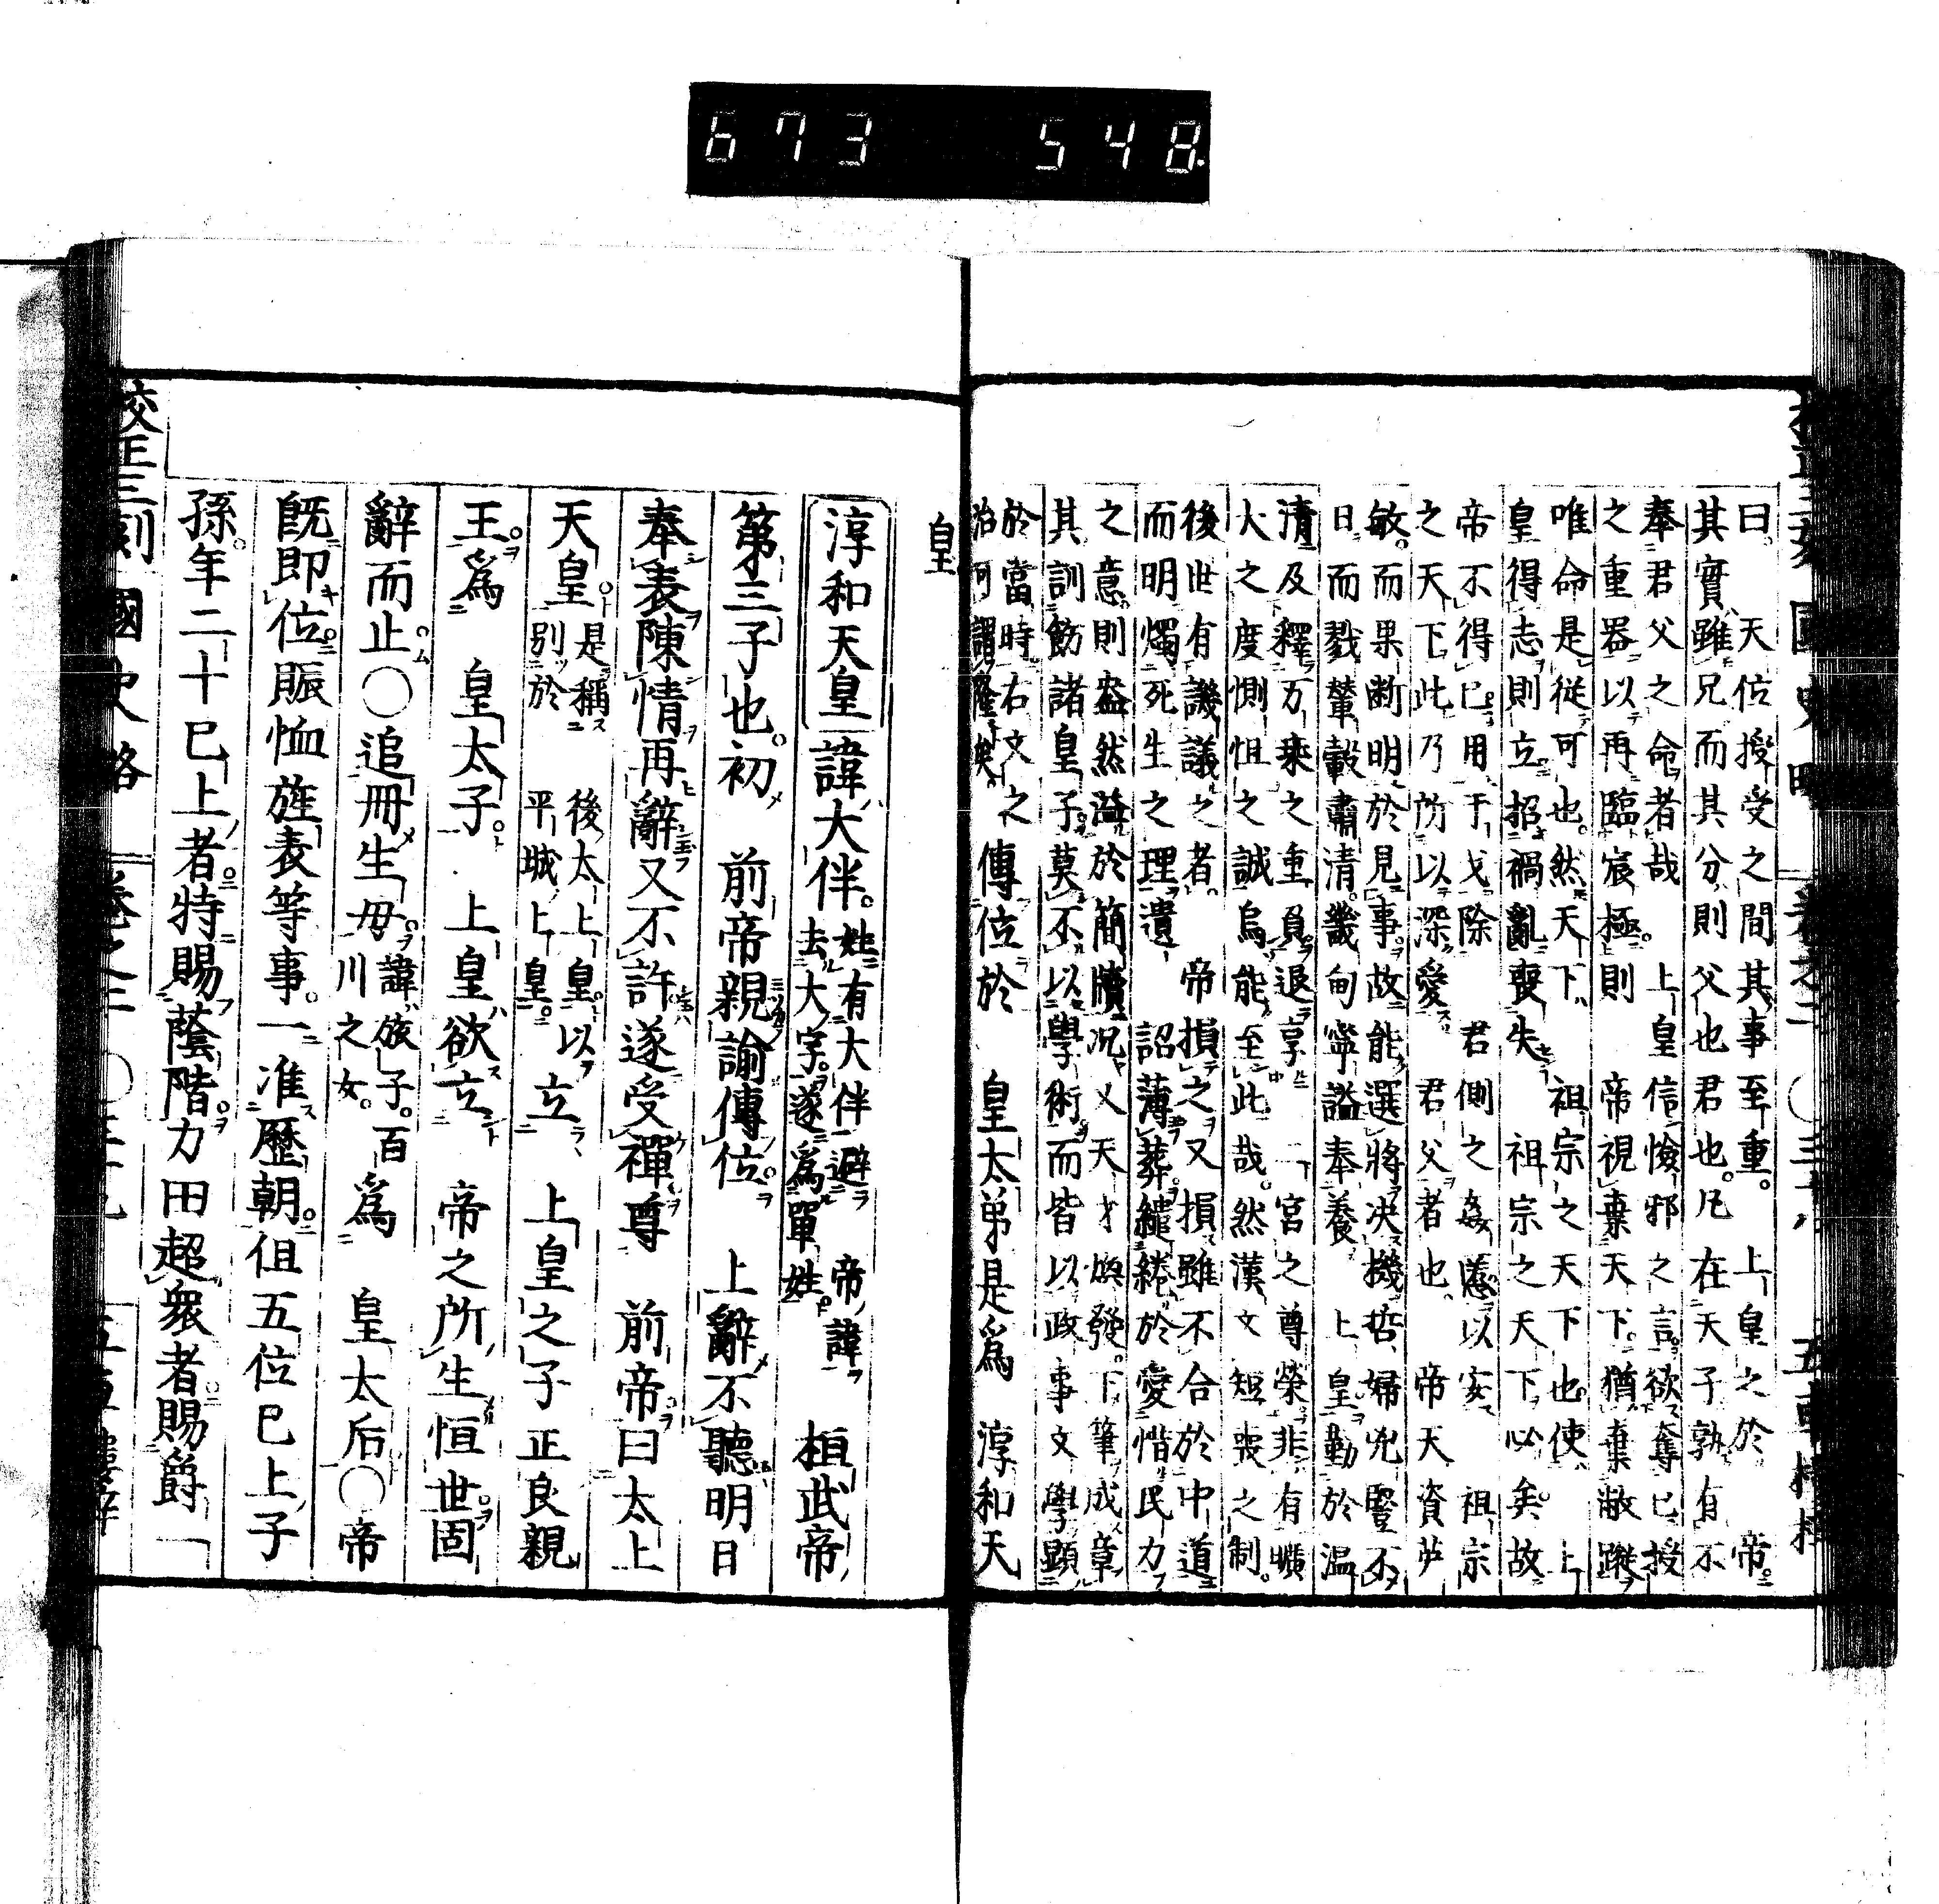 673 548
曰天位授受之間其事至重上皇之於帝
其實雖兄而其分則父也君也凡在天子孰有不
奉君父之命者哉上皇信憸邪之言欲奪已授
之重器以再臨宸極則帝視棄天下猶棄敝蹝
唯命是從可也然天下祖宗之天下也使上
皇得志則立招禍亂喪失祖宗之天下必矣故
帝不得已用于戈除君側之姦慝以安祖宗
之天下此乃所以深愛君父者也帝天資英
敏而果斷明於見事故能選將決機哲婦兇豎不
日而戮輦轂肅清畿甸寧謐奉養上皇勤於溫
清及釋万乘之重負退享一宮之尊榮非有曠
大之度惻怛之誠烏能至此哉然漢文短喪之制
後世有譏議之者帝損之又損雖不合於中道
而明燭死生之理遺詔薄葬繾綣於愛惜民力
之意則盎然溢於簡牘況乂天才煥發下筆成章
其訓飭諸皇子莫不以學術而皆以政事文學顯
於當時右文之
治可謂隆矣
傳位於皇太弟是爲淳和天
皇
淳和天皇諱大伴
姓有大伴避帝諱
去大字遂爲單姓
桓武帝
第三子也初前帝親諭傳位上辭不聽明日
奉表陳情再辭又不許遂受禪尊前帝曰太上
天皇
是稱後太上皇以
別於平城上皇
立上皇之子正良親
王爲皇太子上皇欲立帝之所生恒世固
辭而止〇追冊生母
諱旅子百
川之女
爲皇太后〇帝
既即位賑恤旌表等事一准歷朝但五位已上子
孫年二十已上者特賜蔭階力田超衆者賜爵一
國史略